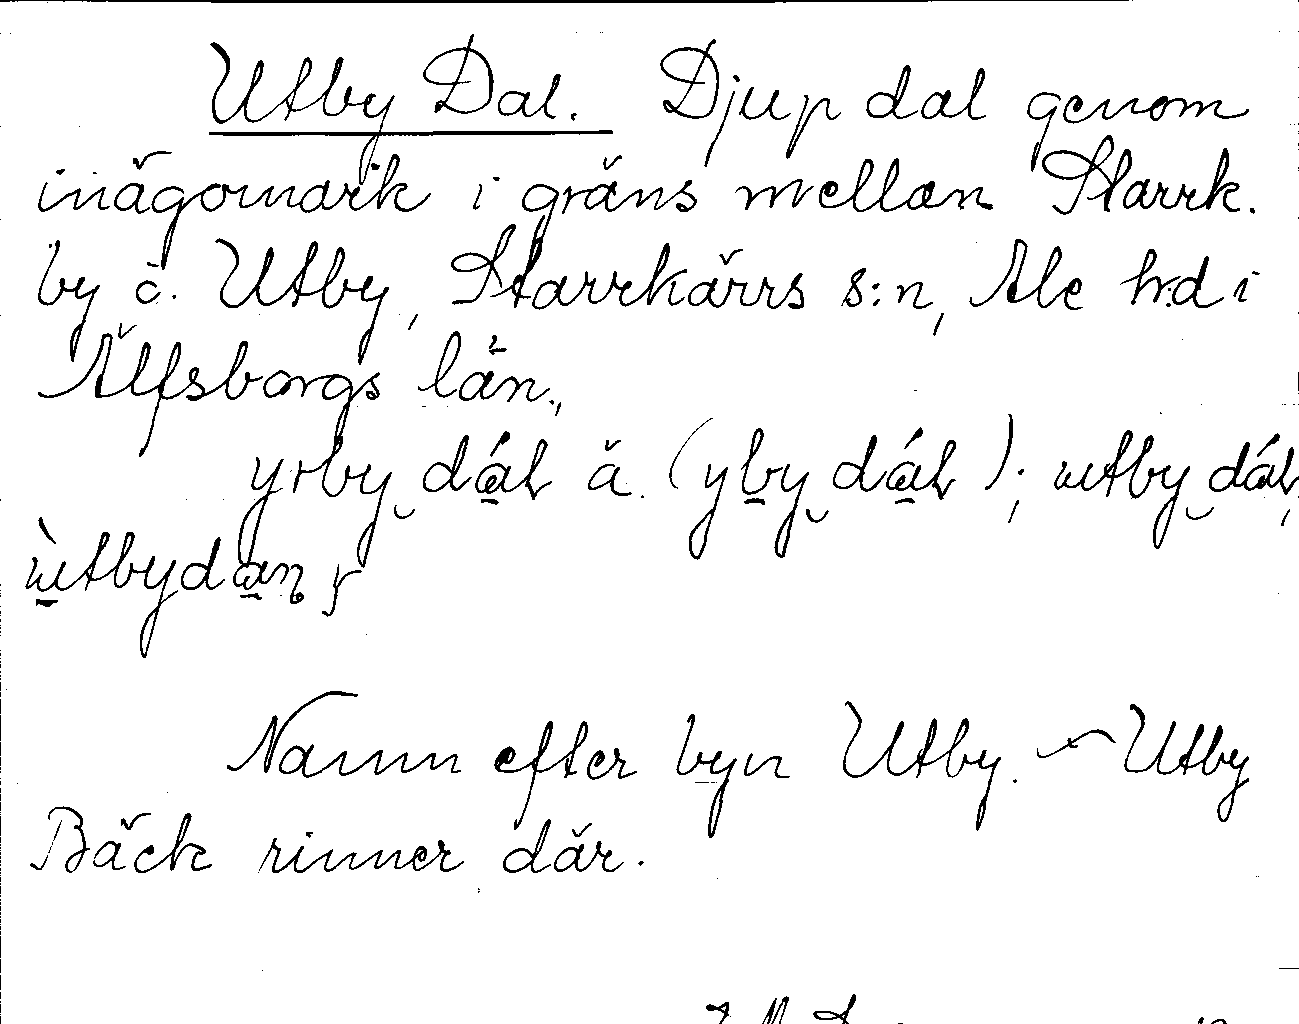 Utby Dal. Djup dal genom
inägomark i gräns mellan Starrk.
by o. Utby, Starrkärrs s:n, Ale hd i
Älfsborgs län.,
yrby dál ä. (yby dál); utby dál,
ùtbydan, r
Namn efter byn Utby. ~ Utby
Bäck rinner där.